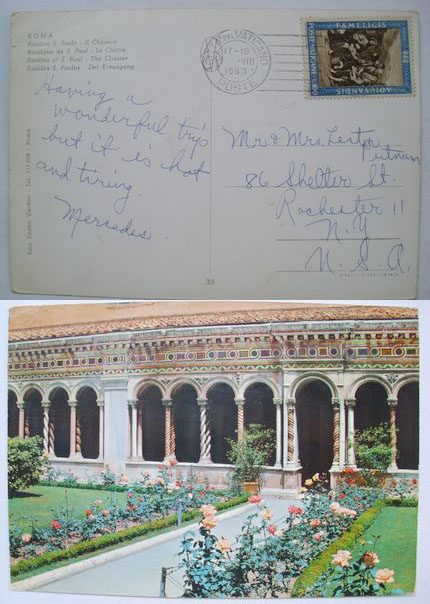 ROMA
Basilica S. Paolo - Il Chiostro
Basilique de S. Paul - Le Cloitre
Basilica of S. Paul - The Cloister
Basilika S. Paulus - Der Kreuzgang
VATICANO
17-18
VIII
1963
POSTE
FAMELICIS
POSTE VATICANE
ADIUVANDIS
Having a
wonderful trip
but it is hot
and tiring.
Mercedes.
Mr & Mrs. Lester
Putnam
86 Shelter St.
Rochester 11
N.Y.
U.S.A.
39
Roma